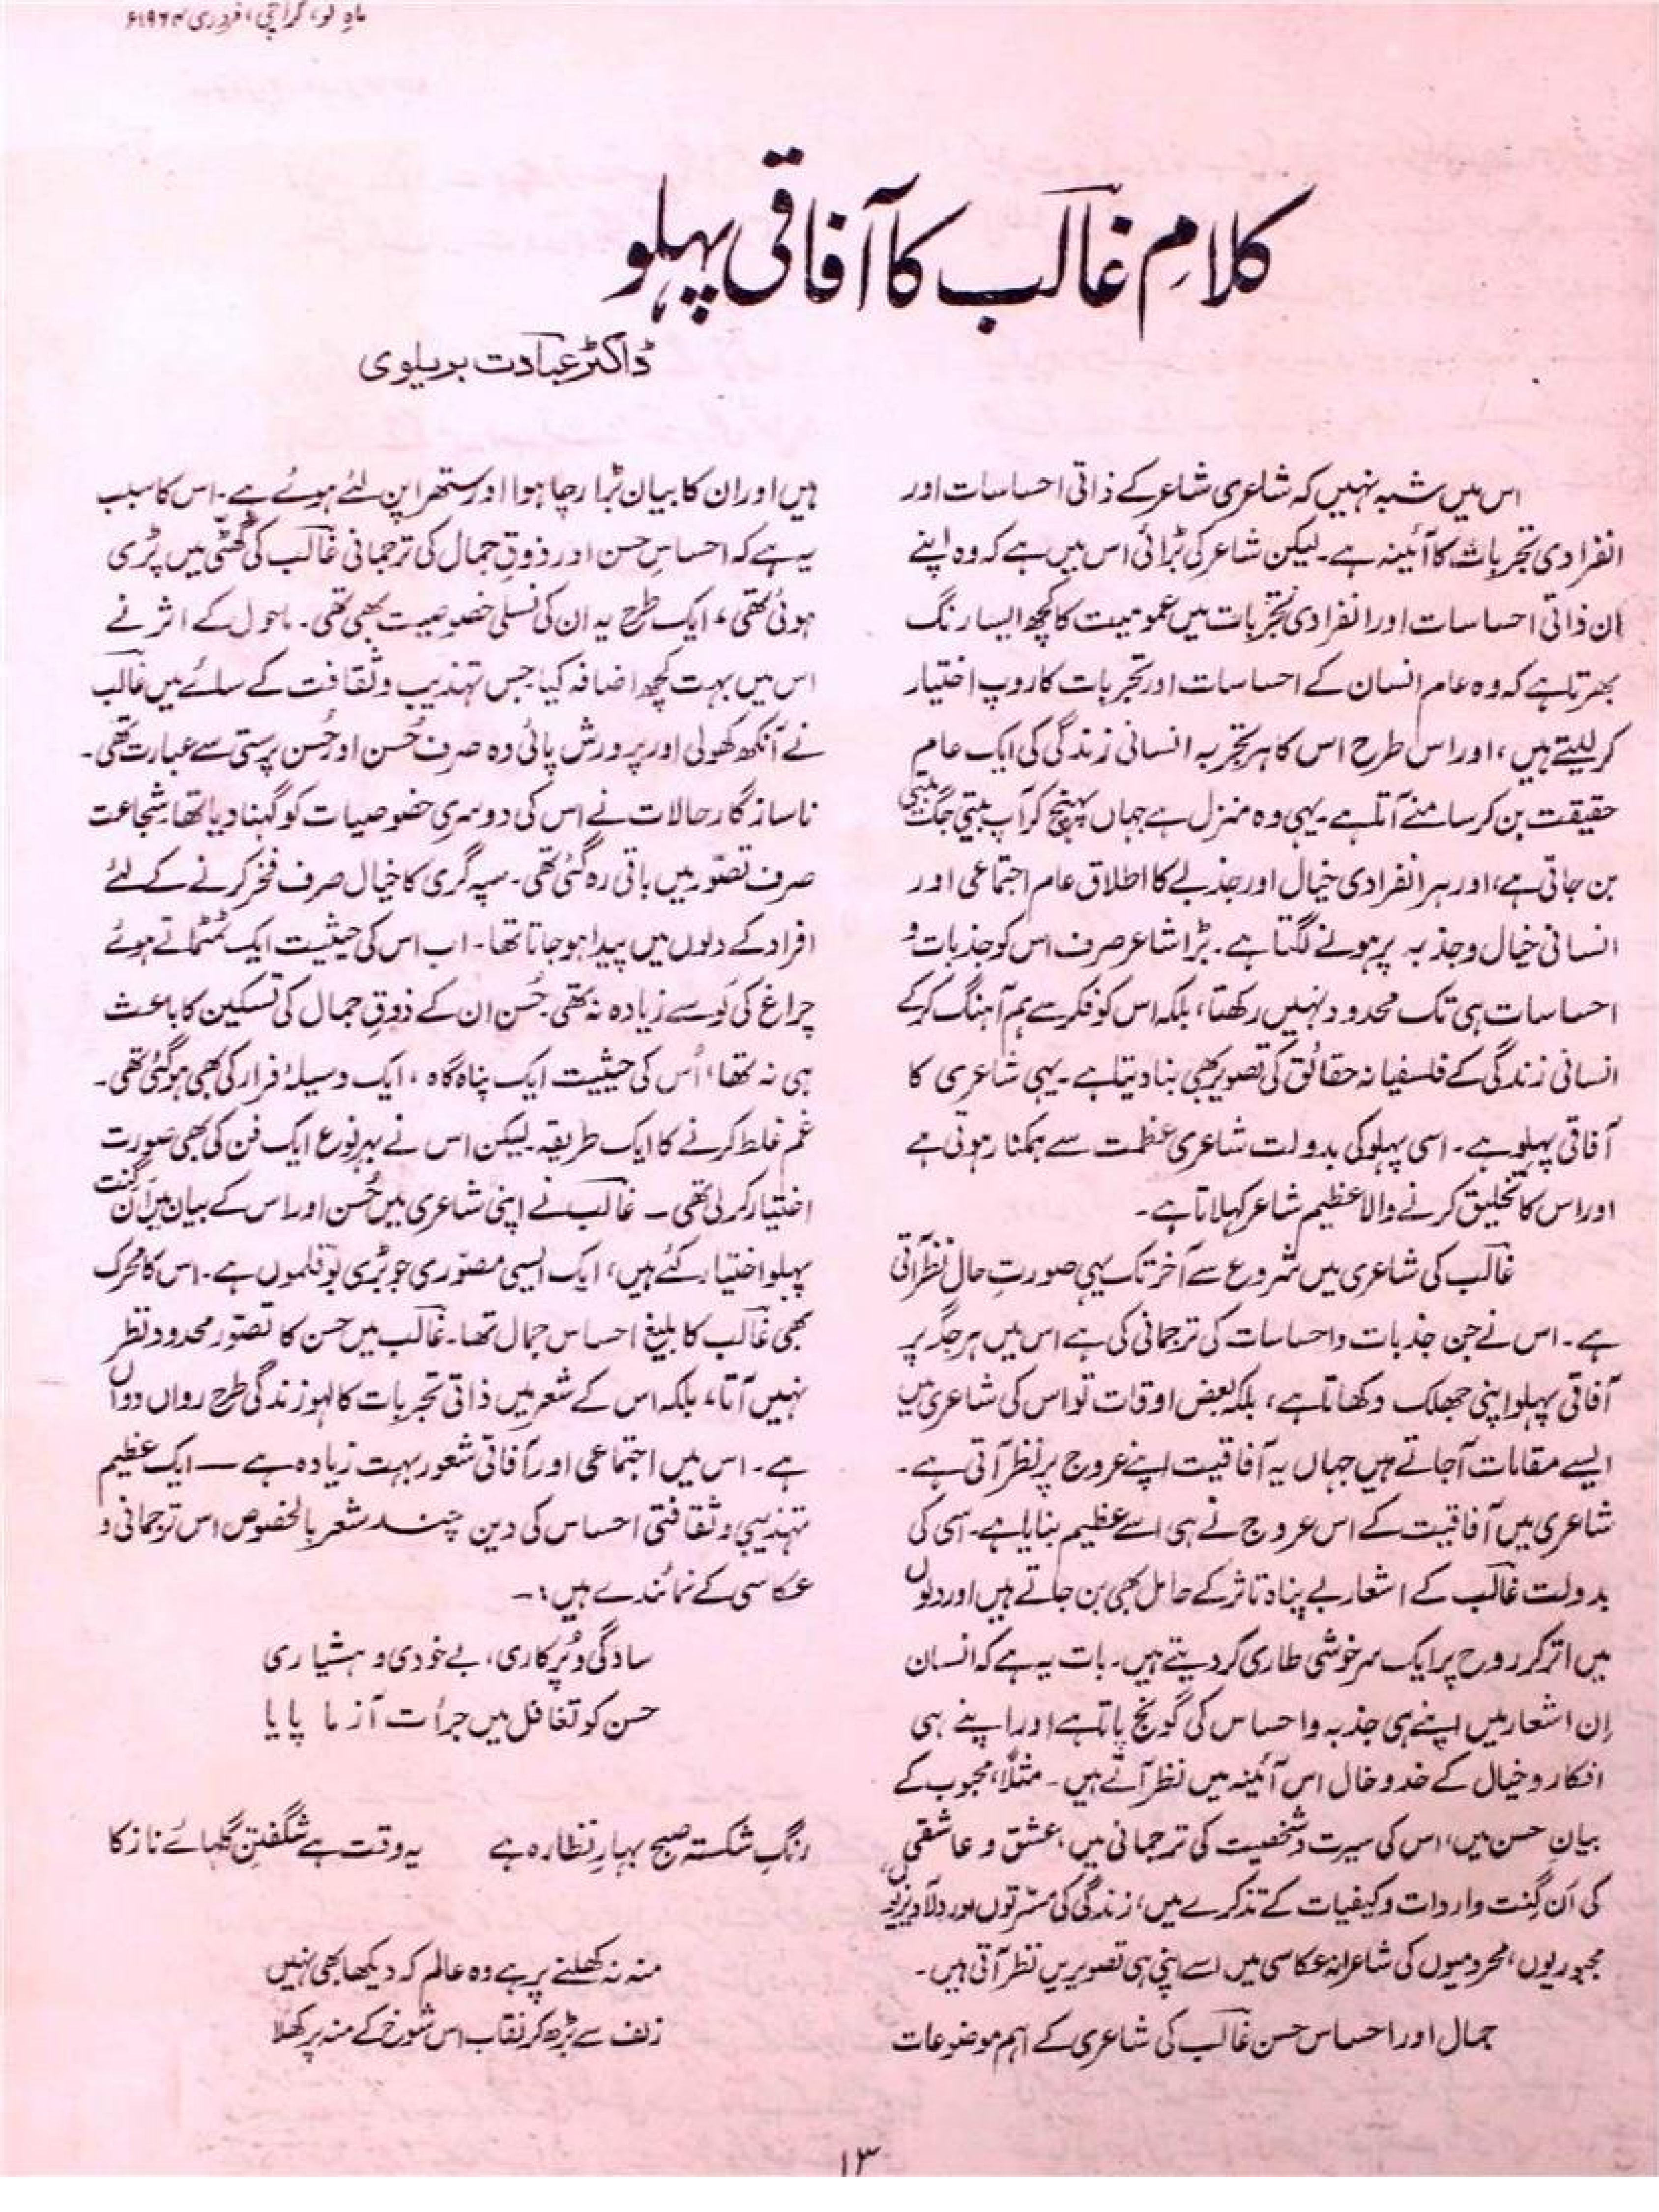 ماہِ نو، کراچی، فروری ۱۹۶۴ء
کلامِ غالب کا آفاقی پہلو
ڈاکٹر عبادت بریلوی
اس میں شبہ نہیں کہ شاعری شاعر کے ذاتی احساسات اور
انفرادی تجربات کا آئینہ ہے۔ لیکن شاعر کی بڑائی اس میں ہے کہ وہ اپنے
ان ذاتی احساسات اور انفرادی تجربات میں عمومیت کا کچھ ایسا رنگ
بھرتا ہے کہ وہ عام انسان کے احساسات اور تجربات کا روپ اختیار
کر لیتے ہیں، اور اس طرح اس کا ہر تجربہ انسانی زندگی کی ایک عام
حقیقت بن کر سامنے آتا ہے۔ یہی وہ منزل ہے جہاں پہنچ کر آپ بیتی جگ بیتی
بن جاتی ہے، اور ہر انفرادی خیال اور جذبے کا اطلاق عام اجتماعی اور
انسانی خیال و جذبہ پر ہونے لگتا ہے۔ بڑا شاعر صرف اس کو جذبات و
احساسات ہی تک محدود نہیں رکھتا، بلکہ اس کو فکر سے ہم آہنگ کر کے
انسانی زندگی کے فلسفیانہ حقائق کی تصویر بھی بنا دیتا ہے۔ یہی شاعری کا
آفاقی پہلو ہے۔ اسی پہلو کی بدولت شاعری عظمت سے ہمکنار ہوتی ہے
اور اس کا تخلیق کرنے والا عظیم شاعر کہلاتا ہے۔
غالب کی شاعری میں شروع سے آخر تک یہی صورتِ حال نظر آتی
ہے۔ اس نے جن جذبات و احساسات کی ترجمانی کی ہے اس میں ہر جگہ پر
آفاقی پہلو اپنی جھلک دکھاتا ہے، بلکہ بعض اوقات تو اس کی شاعری میں
ایسے مقامات آجاتے ہیں جہاں یہ آفاقیت اپنے عروج پر نظر آتی ہے۔
شاعری میں آفاقیت کے اس عروج نے ہی اسے عظیم بنایا ہے۔ اسی کی
بدولت غالب کے اشعار بے پناہ تاثر کے حامل بھی بن جاتے ہیں اور دلوں
میں اتر کر روح پر ایک سرخوشی طاری کر دیتے ہیں۔ بات یہ ہے کہ انسان
اِن اشعار میں اپنے ہی جذبہ و احساس کی گونج پاتا ہے اور اپنے ہی
افکار و خیال کے خد و خال اس آئینہ میں نظر آتے ہیں۔ مثلاً، محبوب کے
بیانِ حسن میں، اس کی سیرت و شخصیت کی ترجمانی میں، عشق و عاشقی
کی اَن گِنت واردات و کیفیات کے تذکرے میں، زندگی کی مسرتوں اور دلآویزیوں،
مجبوریوں، محرومیوں کی شاعرانہ عکاسی میں اسے اپنی ہی تصویریں نظر آتی ہیں۔
جمال اور احساس حسن غالب کی شاعری کے اہم موضوعات
ہیں اور ان کا بیان بڑا رچا ہوا اور ستھرا پن لئے ہوئے ہے۔ اس کا سبب
یہ ہے کہ احساسِ حسن اور ذوقِ جمال کی ترجمانی غالب کی گھٹی میں پڑی
ہوئی تھی، ایک طرح یہ ان کی نسلی خصوصیت بھی تھی۔ ماحول کے اثر نے
اس میں بہت کچھ اضافہ کیا۔ جس تہذیب و ثقافت کے سائے میں غالب
نے آنکھ کھولی اور پرورش پائی وہ صرف حُسن اور حُسن پرستی سے عبارت تھی۔
ناسازگار حالات نے اس کی دوسری خصوصیات کو گہنا دیا تھا۔ شجاعت
صرف تصوّر میں باقی رہ گئی تھی۔ سپہ گری کا خیال صرف فخر کرنے کے لئے
افراد کے دلوں میں پیدا ہو جاتا تھا۔ اب اس کی حیثیت ایک ٹمٹماتے ہوئے
چراغ کی لَو سے زیادہ نہ تھی۔ حُسن ان کے ذوقِ جمال کی تسکین کا باعث
ہی نہ تھا، اُس کی حیثیت ایک پناہ گاہ، ایک وسیلۂ فرار کی بھی ہوگئی تھی۔
غم غلط کرنے کا ایک طریقہ۔ لیکن اس نے بہر نوع ایک فن کی بھی صورت
اختیار کر لی تھی ۔ غالب نے اپنی شاعری میں حُسن اور اس کے بیان میں اَن گنت
پہلو اختیار کئے ہیں، ایک ایسی مصوّری جو بڑی بوقلموں ہے۔ اس کا محرک
بھی غالب کا بلیغ احساس جمال تھا۔ غالب میں حسن کا تصوّر محدود نظر
نہیں آتا، بلکہ اس کے شعر میں ذاتی تجربات کا لہو زندگی طرح رواں دواں
ہے۔ اس میں اجتماعی اور آفاقی شعور بہت زیادہ ہے — ایک عظیم
تہذیبی و ثقافتی احساس کی دین چند شعر بالخصوص اس ترجمانی و
عکاسی کے نمائندے ہیں:۔
سادگی و پُرکاری، بے خودی و ہشیاری
حسن کو تغافل میں جرأت آزما پایا
رنگِ شکستہ صبحِ بہارِ نظارہ ہے یہ وقت ہے شگفتنِ گلہائے ناز کا
منہ نہ کھلنے پر ہے وہ عالم کہ دیکھا بھی نہیں
زلف سے بڑھ کر نقاب اس شوخ کے منہ پر کھلا
۱۳